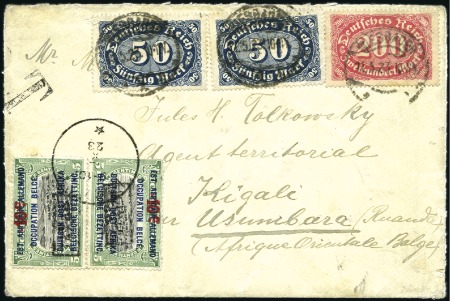 Deutsches Reich
50
Fünfzig Mark
Deutsches Reich
50
Fünfzig Mark
Deutsches Reich
200
Zweihundert Mark
Mr
T
Jules H. Tolkowsky
Agent territorial
Kigali
Usumbara (Ruanda)
(Afrique Orientale Belge)
23
EST AFRICAIN ALLEMAND
OCCUPATION BELGE
DUITSCH OOST AFRIKA
BELGISCHE BEZETTING
EST AFRICAIN ALLEMAND
OCCUPATION BELGE
DUITSCH OOST AFRIKA
BELGISCHE BEZETTING